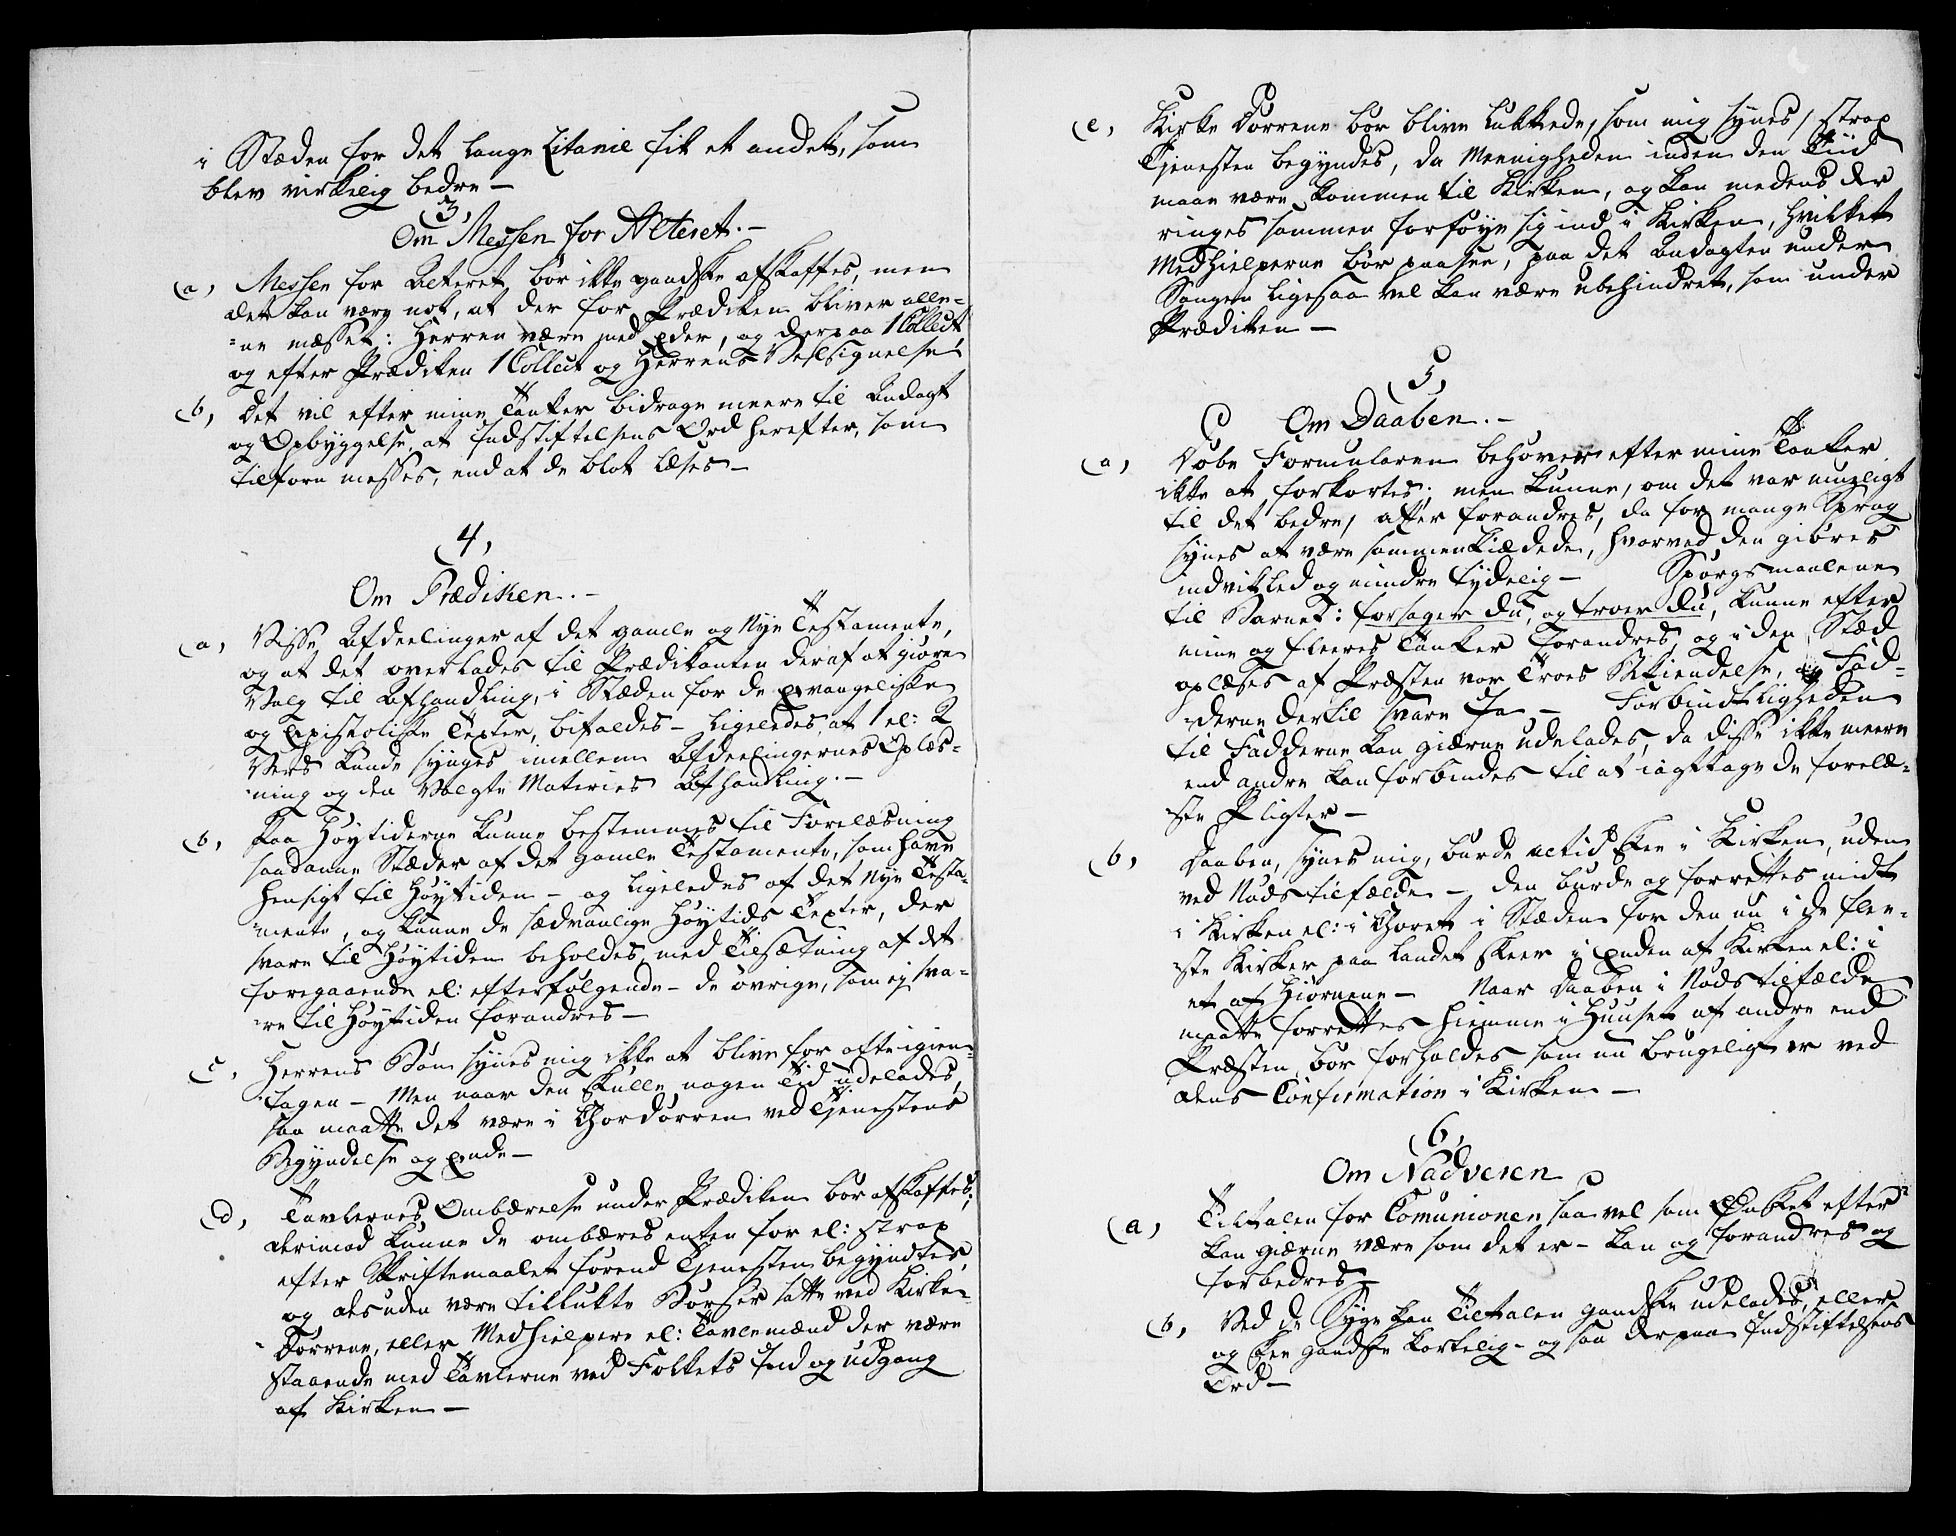 i Stæden for det lange Litanie fik et andet, som
blev virkelig bedre —
3,
Om Messen for Alteret. —
a, Messen for Alteret bør ikke gandske afskaffes, men
det kan være nok, at der for Prædiken bliver alle-
=ne mæsset: Herren være med Eder, og derpaa 1 Collect,
og efter Prædiken 1 Collect og Herrens Velsignelse.
b, Det vil efter mine Tanker bidrage meere til Andagt
og Opbyggelse, at Indstiftelsens Ord herefter, som
tilforn messes, end at de blot læses —
4,
Om Prædiken. —
a, Visse Afdeelinger af det gamle og Nye Testamente,
og at det overlades til Prædikanten deraf at giøre
Valg til Afhandling, i Stæden for de Evangeliske
og Epistoliske Texter, bifaldes — ligeledes, at 1 el: 2
Vers kunde synges imellem Afdeelingernes Oplæs-
=ning og den Valgte Materies Afhandling. —
b, Paa Høytiderne kunne bestemmes til Forelæsning
saadanne Stæder af det gamle Testamente, som have
Hensigt til Høytiden — og ligeledes af det Nye Testa-
=mente, og kunne de sædvanlige Høytids Texter, der
svare til Høytiden beholdes, med Tilsætning af det
foregaaende el: efterfølgende — de øvrige, som ej sva-
=re til Høytiden forandres —
c, Herrens Bøn synes mig ikke at blive for ofte igien-
=tagen — Men naar den skulle nogen Tid udelades,
saa maatte det være i Chordørren ved Tjenestens
Begyndelse og Ende —
d, Tavlernes Ombærelse under Prædiken bør afskaffes;
derimod kunne de ombæres enten for el: strax
efter Skriftemaalet førend Tjenesten begyndtes,
og desuden være tillukte Børser satte ved Kirke-
=Dørrene, eller Medhielpere el: Tavlemænd der være
staaende med Tavlerne ved Folkets Ind og udgang
af Kirken —
e, Kirke Dørrene bør blive lukkede, som mig synes, strax
Tjenesten begyndes, da Menigheden inden den Tiid
maae være kommen til Kirken, og kan medens der
ringes sammen forføye sig ind i Kirken, hvilket
Medhielperne bør paasee, paa det Andagten under
Sangen ligesaa vel kan være ubehindret, som under
Prædiken —
5,
Om Daaben. —
a, Døbe Formularen behøver efter mine Tanker
ikke at forkortes; men kunne, om det var mueligt
til det bedre, atter forandres, da for mange Sprog
synes at være sammenkiædede, hvorved den giøres
indvikled og mindre tydelig — Spørgsmaalene
til Barnet: forsager du, og troer du, kunne efter
mine og fleeres Tanker forandres, og i den Stæd
oplæses af Præsten vor Troes Bekiendelse, og Fad-
=derne dertil svare Ja — Forbindtligheden
til Fadderne kan giærne udelades, da disse ikke meere
end andre kan forbindes til at iagttage de forelæ-
=ste Pligter —
b, Daaben, synes mig, burde altid skee i Kirken, uden
ved Nøds tilfælde — den burde og forrettes midt
i Kirken el: i Choret i Stæden for den nu i de flee-
=ste Kirker paa Landet skeer i Enden af Kirken el: i
et af Hiørnene — Naar Daaben i Nøds tilfælde
maatte forrettes hiemme i Huuset af andre end
Præsten, bør forholdes som nu brugeligt er ved
dens Confirmation i Kirken —
6,
Om Nadveren
a, Tiltalen for Comunionen saa vel som Ønsket efter
kan giærne være som det er — kan og forandres og
forbedres —
b, Ved de Syge kan Tiltalen gandske udelades, eller
og skee gandske kortelig — og saa derpaa Indstiftelsens
Ord —